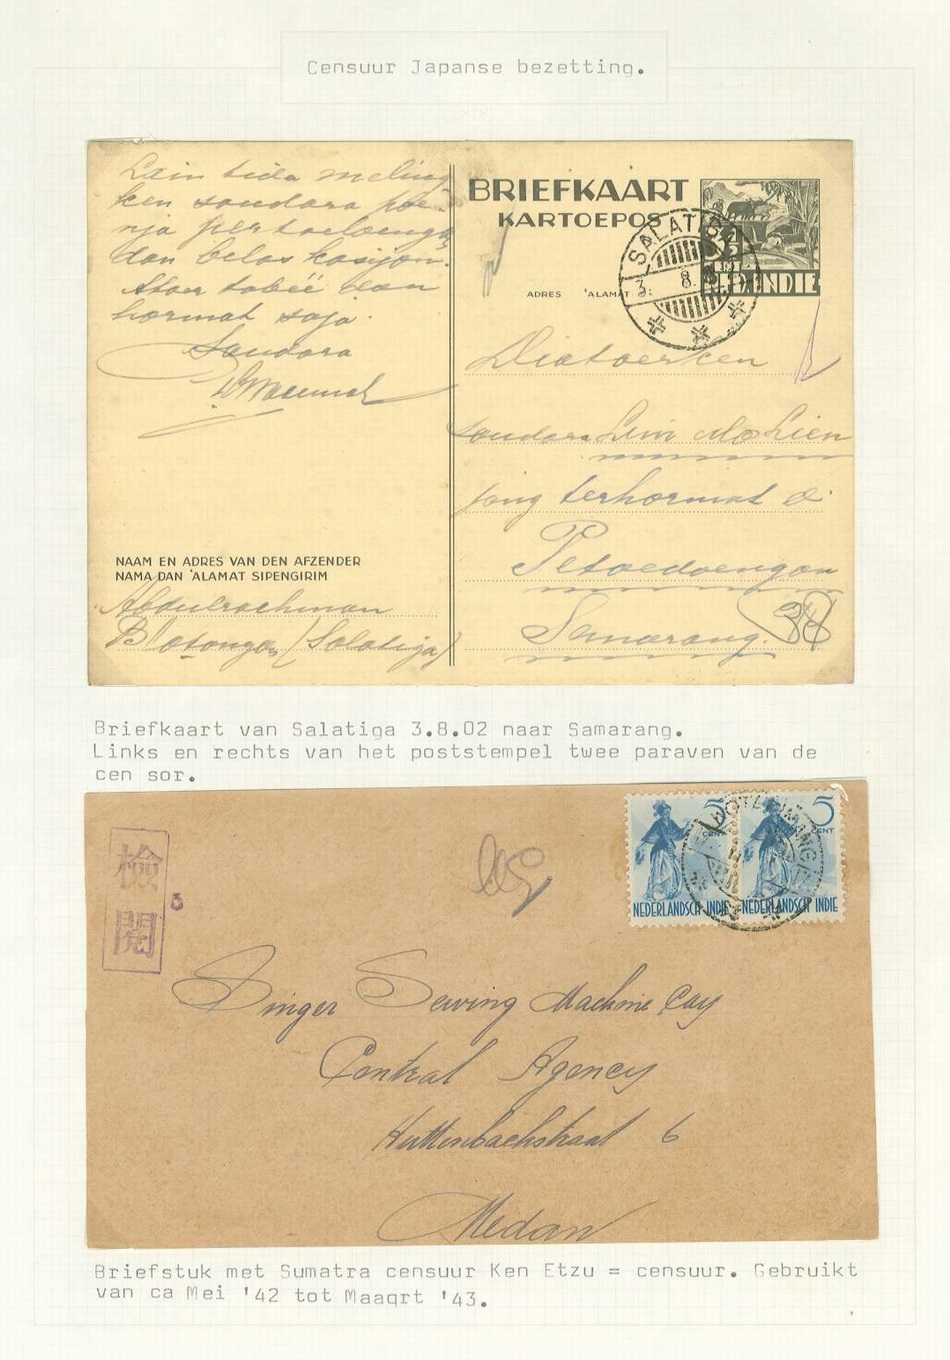 Censuur Japanse bezetting.
Lain tida meling
ken soudara poe-
nja pertoeloenga
dan belas kasijan.
Atoer tabéë dan
hormat saja.
Saudara
BRIEFKAART
KARTOEPOS
ADRES 'ALAMAT
SALATIGA
3. 8.
NED. INDIE
Diatoerken
soudara Lim
jang terhormat di
Petoedoengan
Semarang.
NAAM EN ADRES VAN DEN AFZENDER
NAMA DAN 'ALAMAT SIPENGIRIM
Abdulrachman
Blotongan (Salatiga)
Briefkaart van Salatiga 3.8.02 naar Samarang.
Links en rechts van het poststempel twee paraven van de
cen sor.
檢
閲
3
5 5
CENT CENT
NEDERLANDSCH INDIE NEDERLANDSCH INDIE
Singer Sewing Machine Coy
Central Agency
Huttenbachstraat 6
Medan
Briefstuk met Sumatra censuur Ken Etzu = censuur. Gebruikt
van ca Mei '42 tot Maaqrt '43.